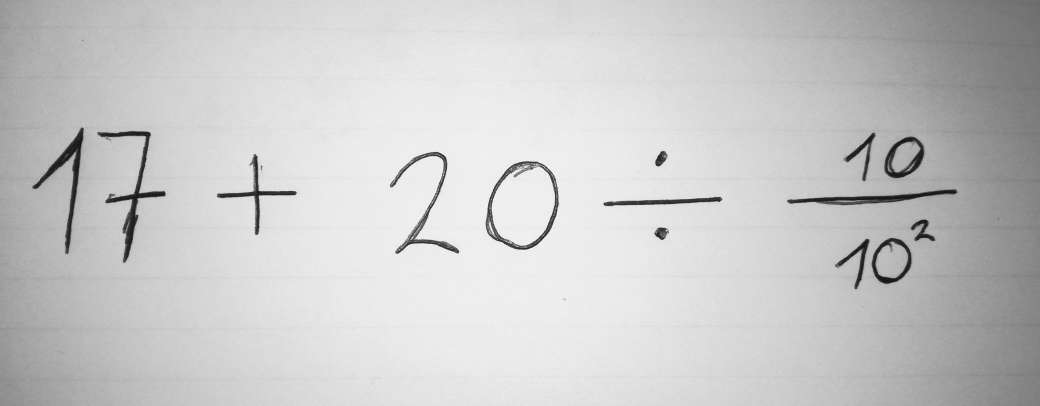 17 + 20 ÷ 10/10²